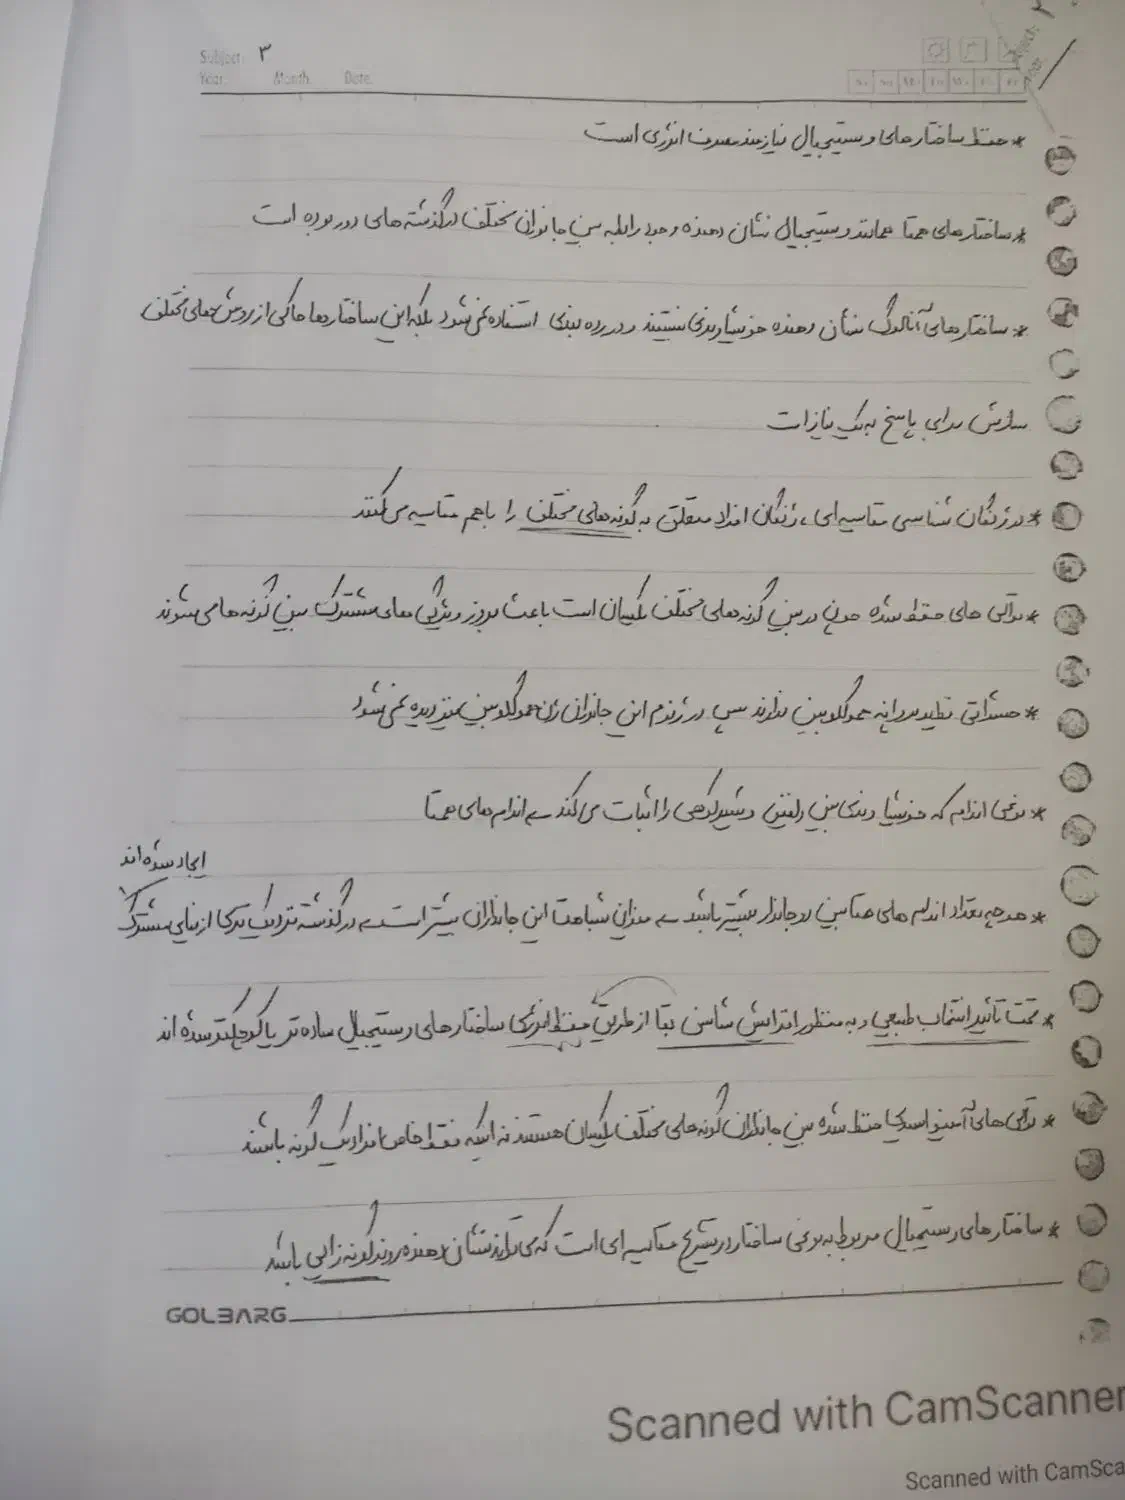 Subject: ۳
Year. Month. Date.
Sa. Su. Mo. Tu. We. Th. Fr.
* حفظ ساختارهای وستیجیال نیازمند مصرف انرژی است
* ساختارهای همتا همانند وستیجیال نشان دهنده وجود رابطه بین جانوران مختلف در گذشته های دور بوده است
* ساختارهای آنالوگ نشان دهنده خویشاوندی نیستند و در رده بندی استفاده نمی شود بلکه این ساختارها حاکی از روش های مختلف
سازش برای پاسخ به یک نیاز است
* در ژنگان شناسی مقایسه ای، ژنگان افراد متعلق به گونه های مختلف را باهم مقایسه می کنند
* توالی های حفظ شده چون در بین گونه های مختلف یکسان است باعث بروز ویژگی های مشترک بین گونه ها می شوند
* حشراتی نظیر پروانه هموگلوبین ندارند پس در ژنوم این جانوران ژن هموگلوبین نیز دیده نمی شود
* نوعی اندام که خویشاوندی بین دلفین و شیرکوهی را اثبات می کند ← اندام های همتا
ایجاد شده اند
* هرچه تعداد اندام های همتا بین دو جاندار بیشتر باشد ← میزان شباهت این جانداران بیشتر است ← در گذشته نزدیک تری از نیای مشترک
* تحت تأثیر انتخاب طبیعی و به منظور افزایش شانس بقا از طریق حفظ انرژی ساختارهای وستیجیال ساده تر یا کوچکتر شده اند
* توالی های آمینواسیدی حفظ شده بین جانداران گونه های مختلف یکسان هستند نه اینکه فقط خاص افراد یک گونه باشند
* ساختارهای وستیجیال مربوط به نوعی ساختار در تشریح مقایسه ای است که می تواند نشان دهنده روند گونه زایی باشد
GOLBARG
Scanned with CamScanner
Scanned with CamSca